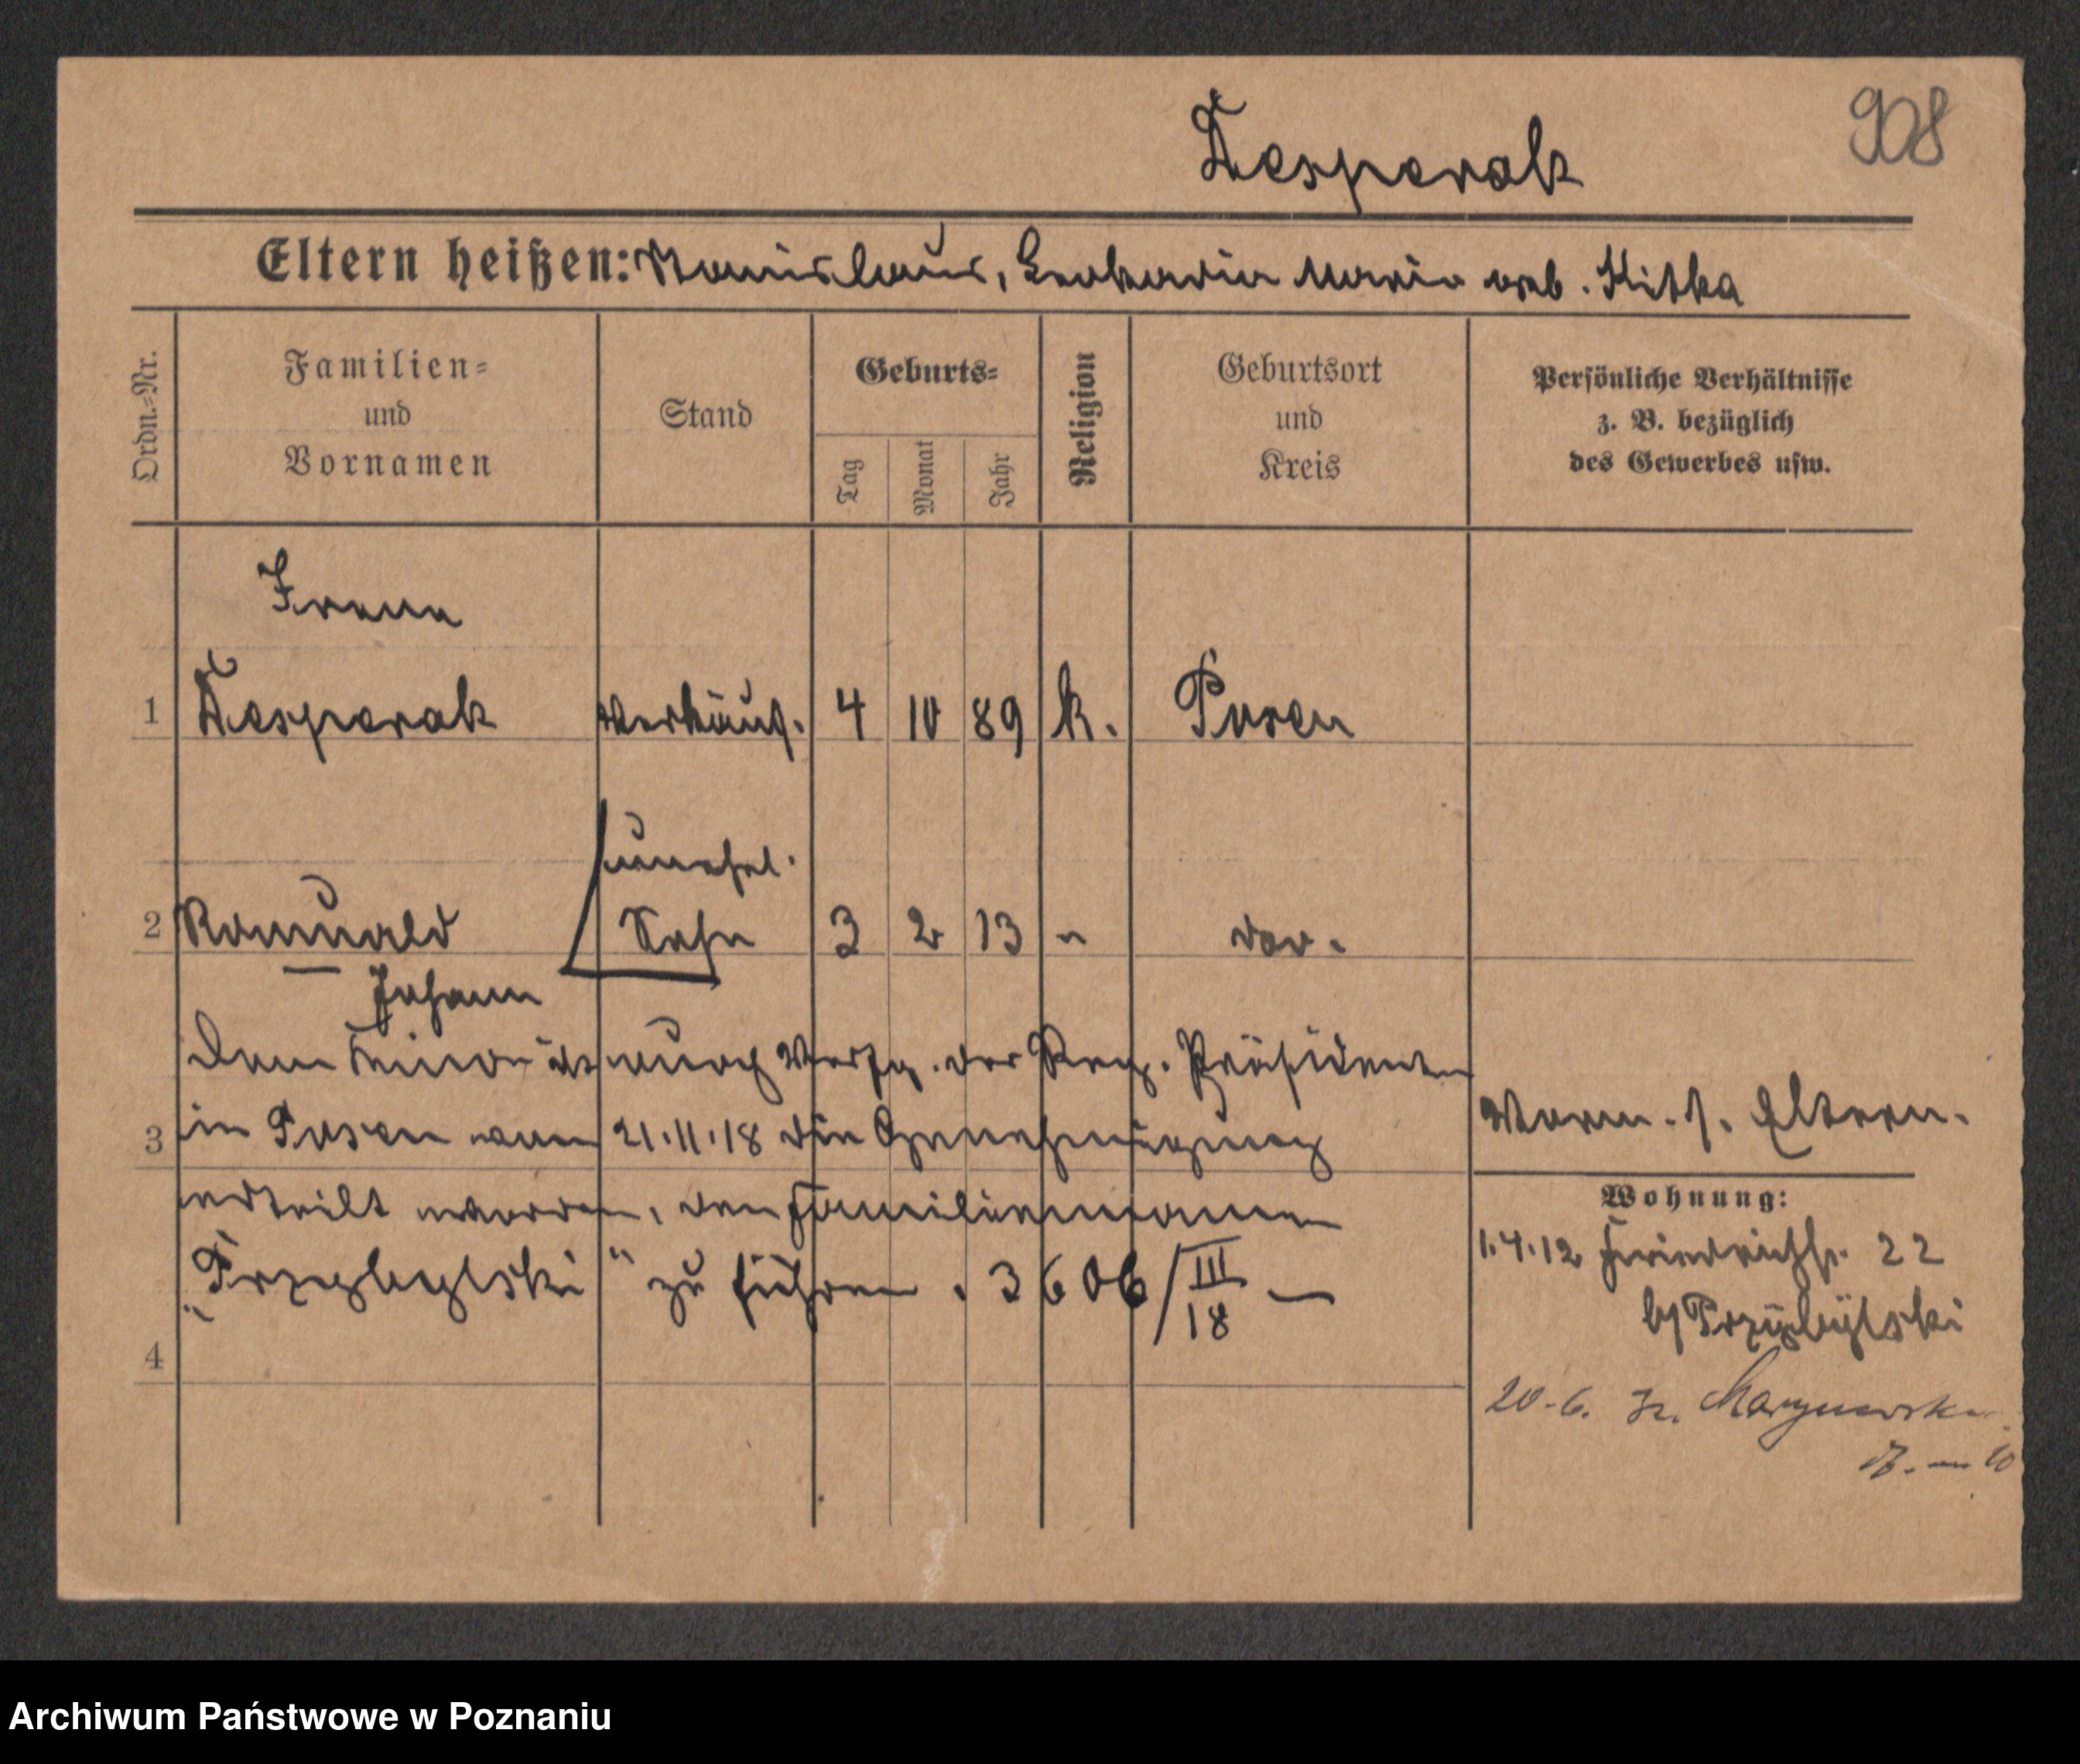 Desperak
908
Eltern heißen: Stanislaus, Leokadia Maria geb. Kitka
Ordn.=Nr.
Familien=
und
Vornamen
Stand
Geburts=
Tag
Monat
Jahr
Religion
Geburtsort
und
Kreis
Persönliche Verhältnisse
z. B. bezüglich
des Gewerbes usw.
Irena
1 Desperak Verkäuf. 4 10 89 k. Posen
unehel.
2 Romuald Sohn 3 2 13 " do.
Johann
Dem Kinde ist durch Verfg. des Reg. Präsidenten
3 in Posen vom 21.11.18 die Genehmigung
erteilt worden, den Familiennamen
„Przybylski" zu führen. 3606/III 18 —
4
Vorm. s. Eltern.
Wohnung:
1.4.12 Friedrichstr. 22
b/ Przybylski
20.6.
Archiwum Państwowe w Poznaniu